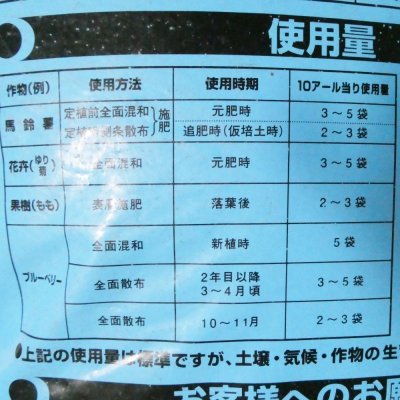 使用量
作物(例) 使用方法 使用時期 10アール当り使用量
馬鈴薯 定植前全面混和 施肥 元肥時 3～5袋
定植後側条散布 追肥時(仮培土時) 2～3袋
花卉(ゆり・菊) 全面混和 元肥時 3～5袋
果樹(もも) 表層施肥 落葉後 2～3袋
ブルーベリー 全面混和 新植時 5袋
全面散布 2年目以降 3～4月頃 3～5袋
全面散布 10～11月 2～3袋
●上記の使用量は標準ですが、土壌・気候・作物の生
お客様へのお願